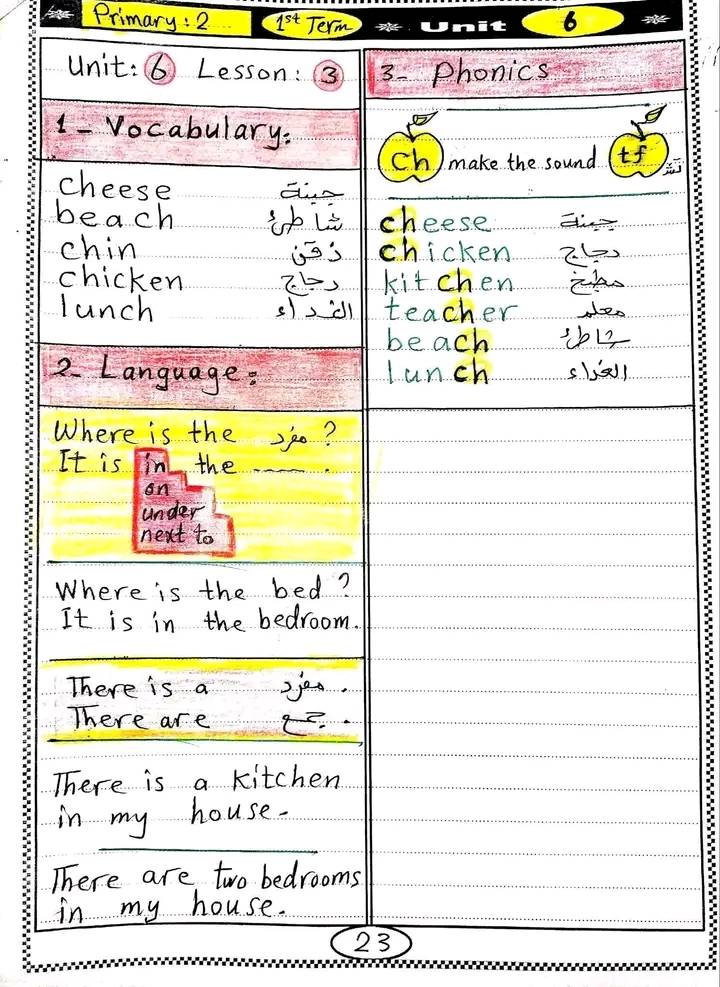 Primary: 2 1st Term Unit 6
Unit: 6 Lesson: 3
1- Vocabulary:
cheese جبنة
beach شاطئ
chin ذقن
chicken دجاج
lunch الغداء
2- Language:
Where is the مفرد ?
It is in the ---- .
on
under
next to
Where is the bed?
It is in the bedroom.
There is a مفرد .
There are جمع .
There is a kitchen
in my house.
There are two bedrooms
in my house.
3- Phonics
ch make the sound tʃ تش
cheese جبنة
chicken دجاج
kitchen مطبخ
teacher معلم
beach شاطئ
lunch الغداء
23